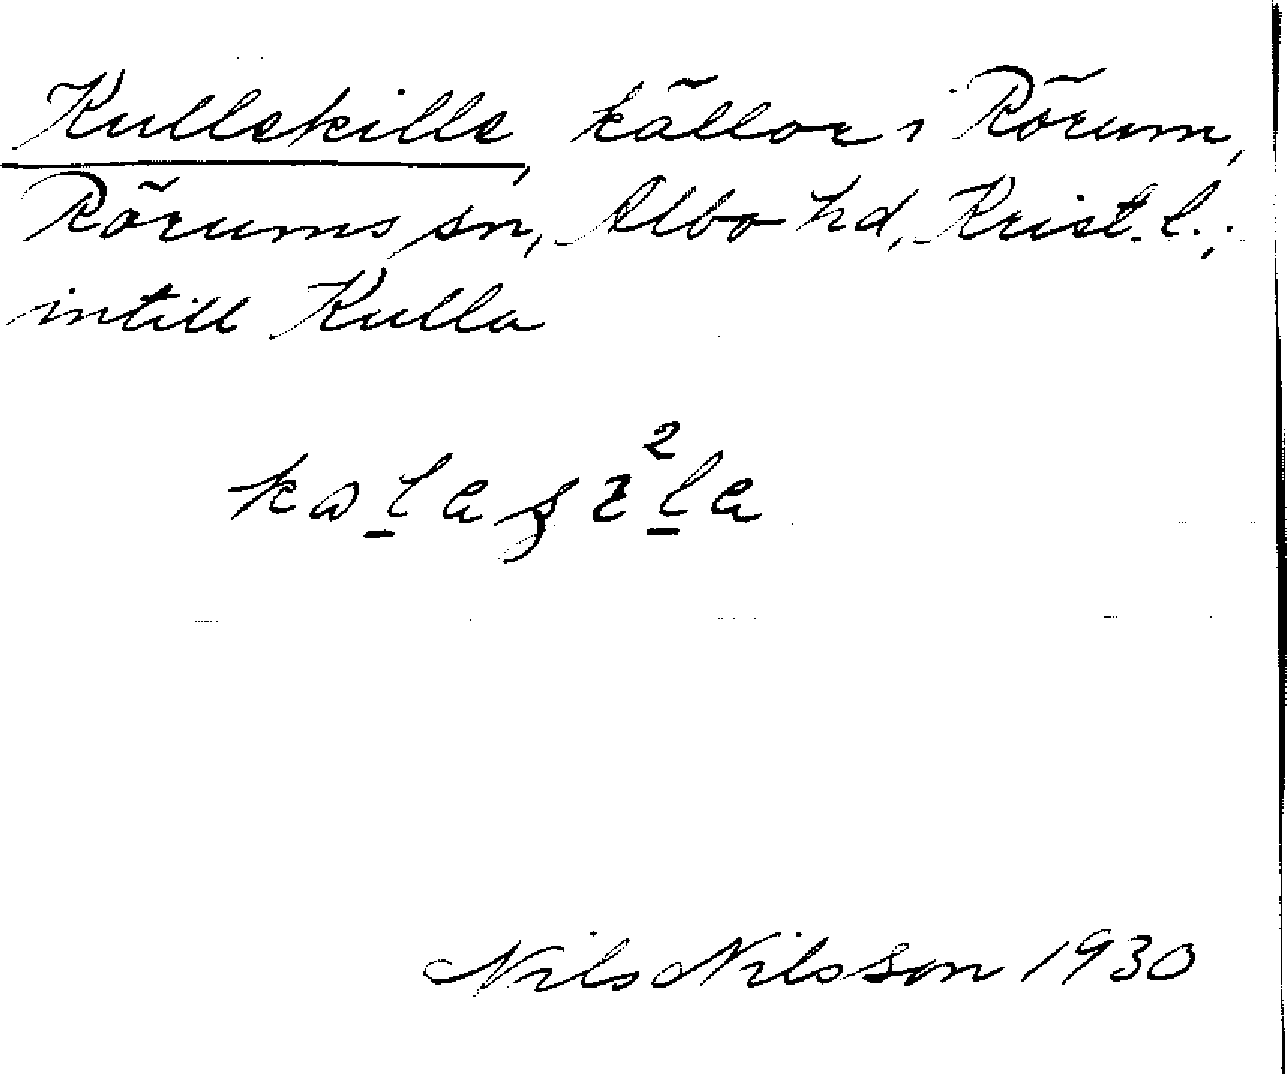 Kullekille, källor i Rörum,
Rörums sn, Albo hd, Krist. l.;
intill Kulla
Nils Nilsson 1930